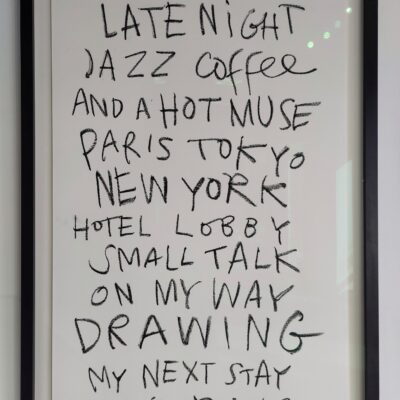 LATE NiGHT
JAZZ coffee
AND A HOT MUSE
PARIS TOKYO
NEW YORK
HOTEL LOBBY
SMALL TALK
ON MY WAY
DRAWING
MY NEXT STAY